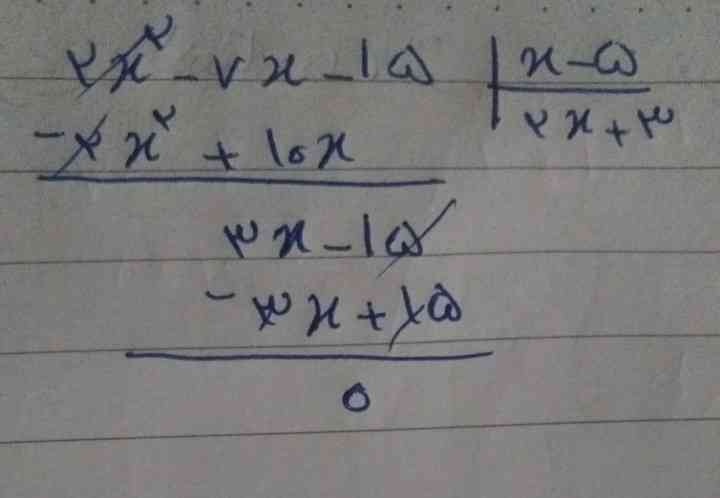 ۲x^۲ - ۷x - ۱۵ | x - ۵
-۲x^۲ + ۱۰x | ۲x + ۳
۳x - ۱۵
-۳x + ۱۵
۰